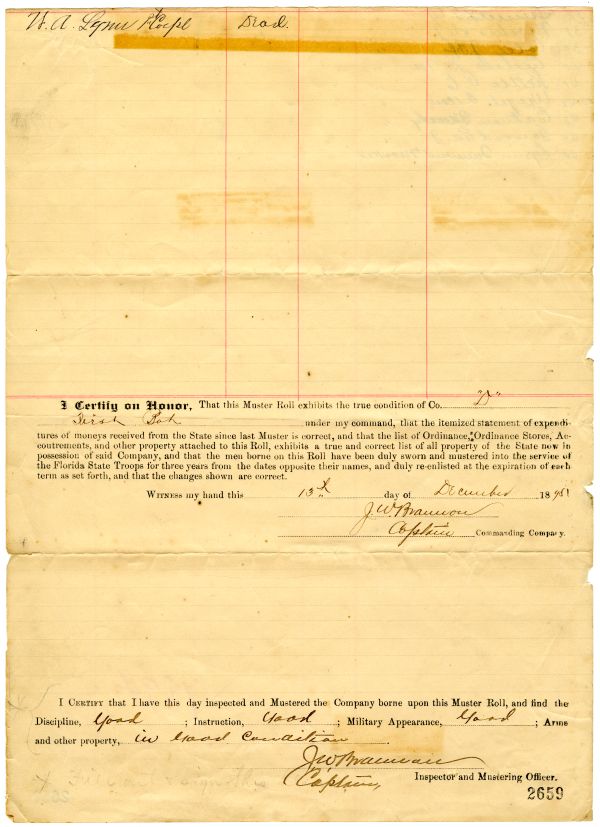 W. A. Lynn Dead.
I Certify on Honor, That this Muster Roll exhibits the true condition of Co. "D"
First Bat under my command, that the itemized statement of expendi-
tures of moneys received from the State since last Muster is correct, and that the list of Ordinance, Ordinance Stores, Ac-
coutrements, and other property attached to this Roll, exhibits a true and correct list of all property of the State now in
possession of said Company, and that the men borne on this Roll have been duly sworn and mustered into the service of
the Florida State Troops for three years from the dates opposite their names, and duly re-enlisted at the expiration of each
term as set forth, and that the changes shown are correct.
WITNESS my hand this 13th day of December 18
J. W. Brannon
Captain Commanding Company.
I CERTIFY that I have this day inspected and Mustered the Company borne upon this Muster Roll, and find the
Discipline, Good ; Instruction, Good ; Military Appearance, Good ; Arms
and other property, in Good Condition
J. W. Brannon
Captain, Inspector and Mustering Officer.
2659